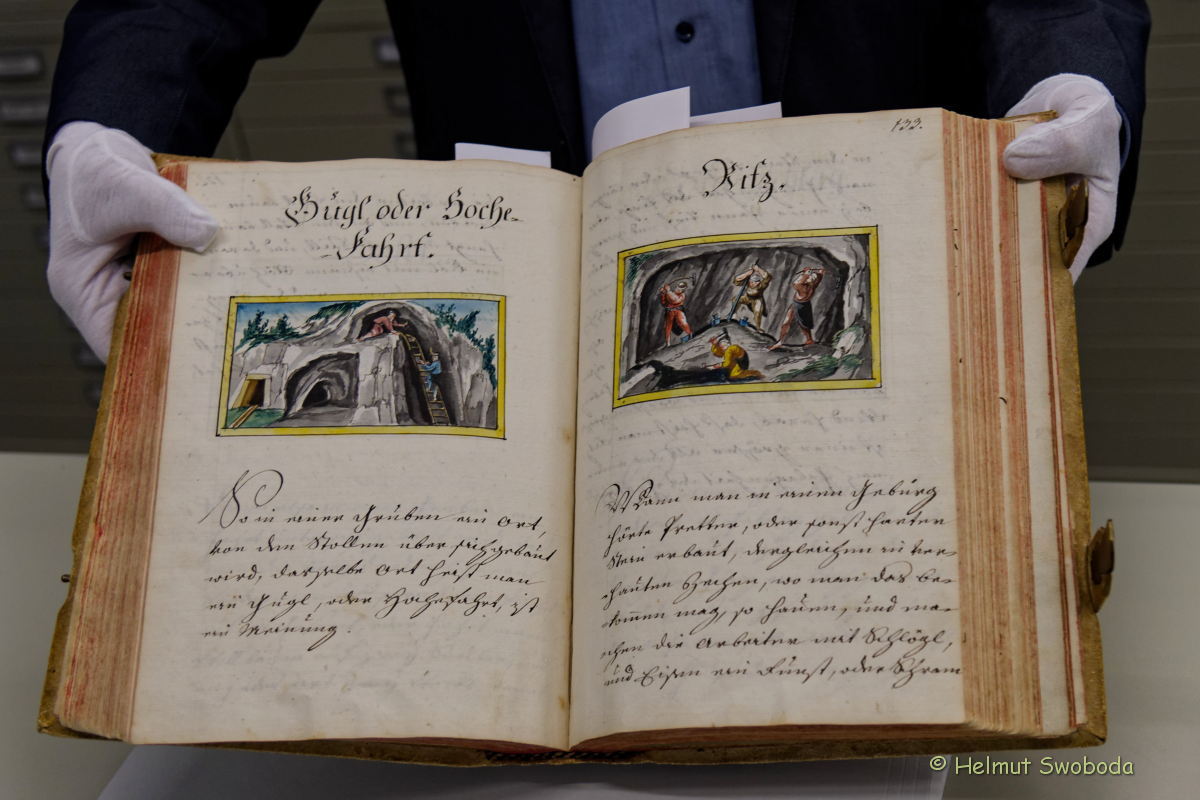 Gugl oder Hoche-
Fahrt.
So in einer Gruben ein Ort,
von dem Stollen über sich gebaut
wird, dasselbe Ort heist man
ein Gugl, oder Hochefahrt, ist
ein Meinung.
133.
Ritz.
Wann man in einem Gebürg
härte Pretter, oder sonst harten
Stein erbaut, dergleichen in ver-
hauten Zechen, wo man das be-
komen mag, so hauen, und ma-
chen die Arbeiter mit Schlögl,
und Eisen ein Fürst, oder Schram
© Helmut Swoboda